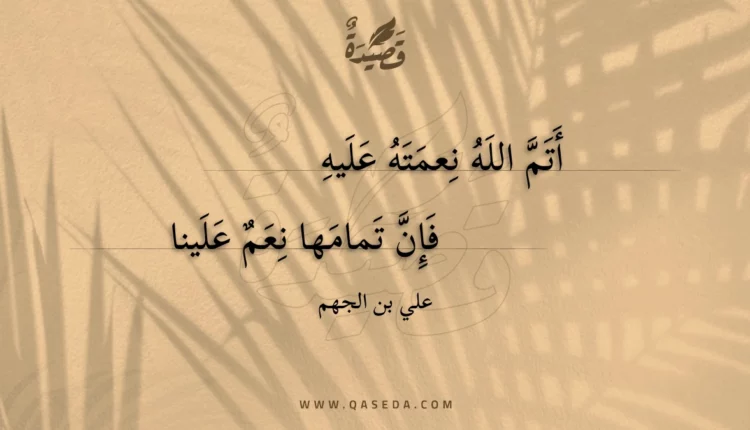 قَصِيدَةٌ
أَتَمَّ اللَهُ نِعمَتَهُ عَلَيهِ
فَإِنَّ تَمامَها نِعَمٌ عَلَينا
علي بن الجهم
WWW.QASEDA.COM